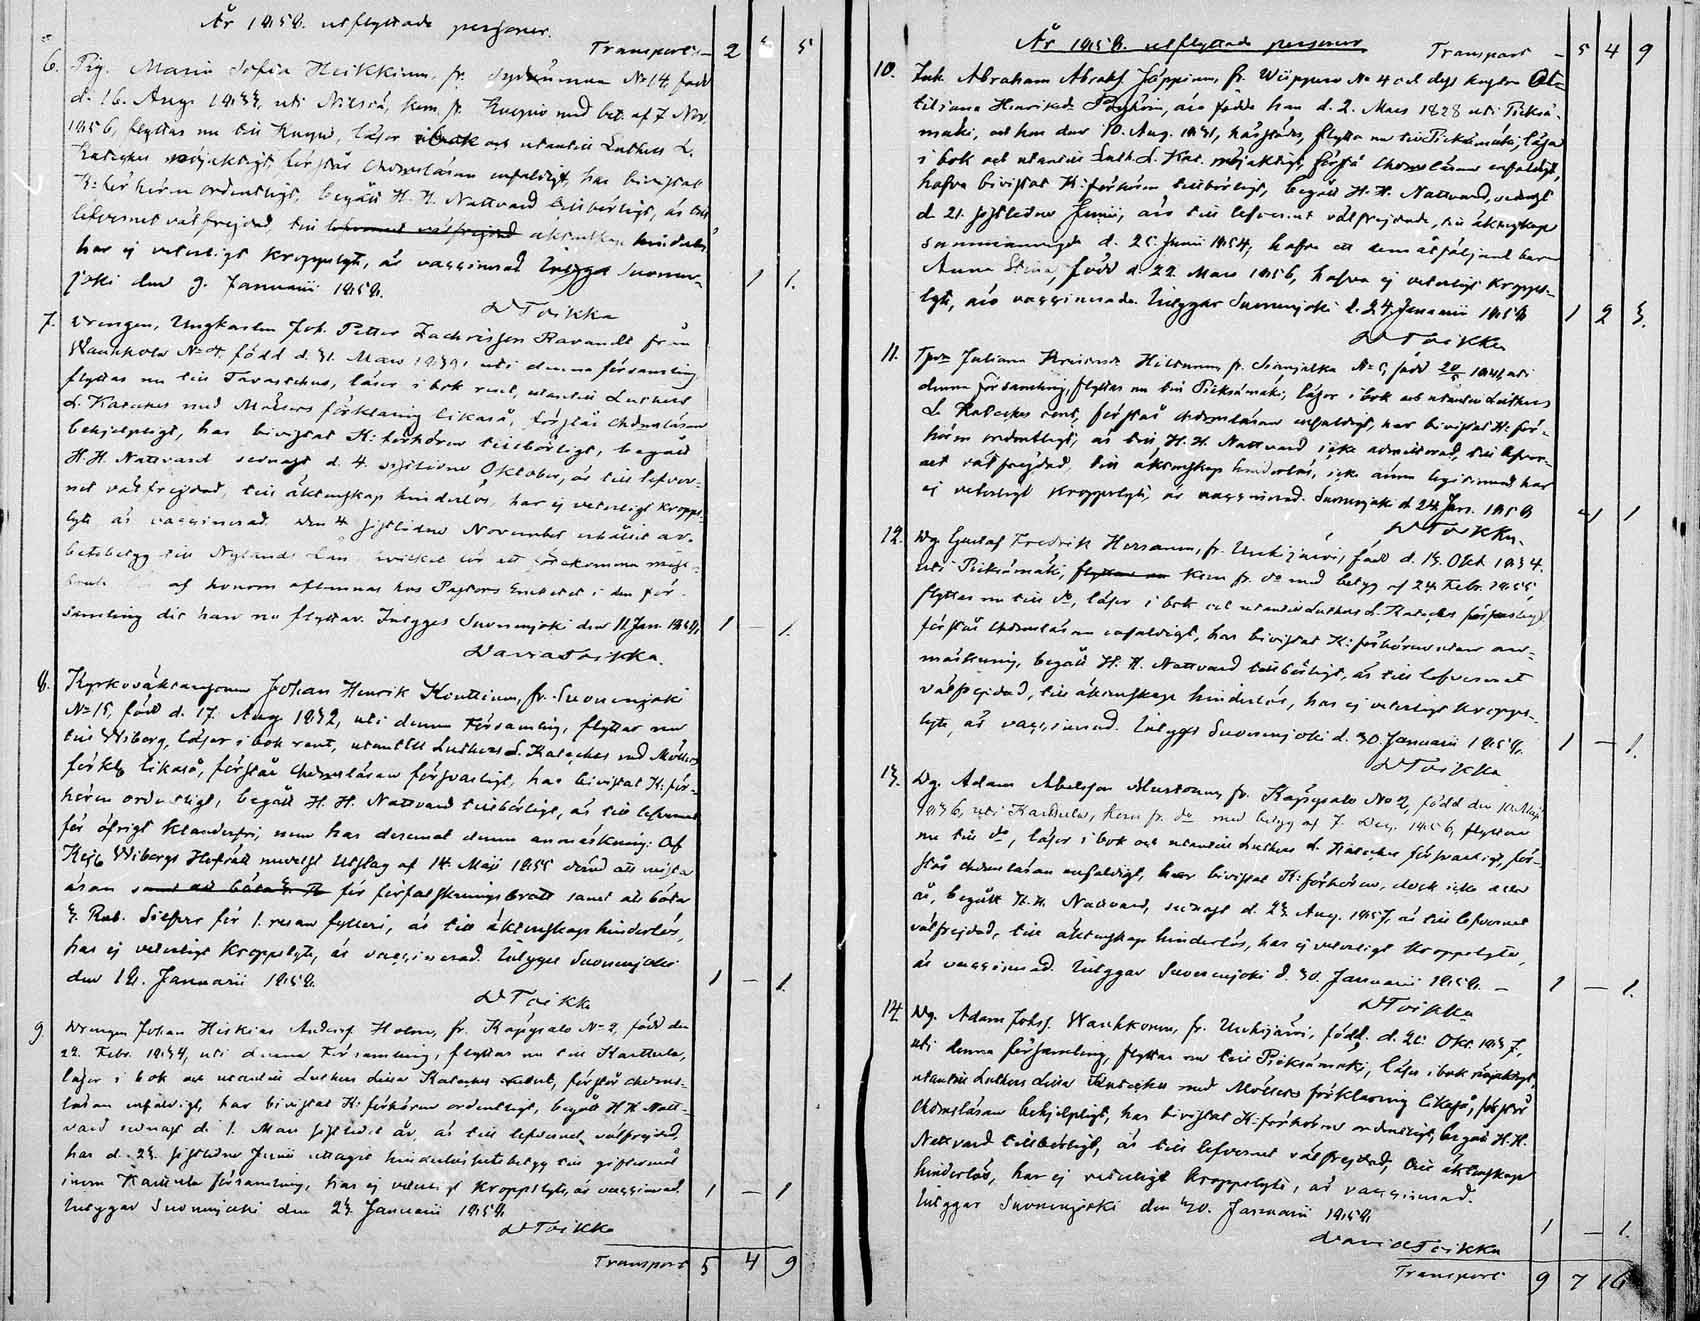 År 1858. utflyttade personer.
Transport — 2 5
6. Pig. Maria Sofia Heikkinen, fr. No 14, född
d. 16. Aug. 1833, uti Nilsiä, kom fr. Kuopio med bet. af 7 Nov.
1856, flyttas nu till Kuopio, läser i bok och utantill Luthers L.
Kateches nöjaktigt, förstår Christeläran enfaldigt, har bivistat
K: förhören ordentligt, begått H. H. Nattvard tillbörligt, är till
lefvernet välfrejdad, till äktenskap hinderlös
har ej veterligt kroppslyte, är vaccinerad Intygar Suonen-
joki den 9. Januarii 1858. 1 1.
D Toikka
7. Drengen, Ungkarlen Joh. Petter Zachrisson Ravandi från
No 4, född d. 31. Mars 1839, uti denna församling
flyttas nu till Tavastehus, läser i bok rent, utantill Luthers
L. Kateches med Möllers förklaring likaså, förstår Christeläran
behjelpligt, har bivistat K: förhören tillbörligt, begått
H. H. Nattvard senast d. 4. sistlidne Oktober, är till lefver-
net välfrejdad, till äktenskap hinderlös, har ej veterligt kropps-
lyte är vaccinerad. den 4 sistlidne November erhållit ar-
betsbetyg till Nylands Län, hvilket för att förekomma miss-
bruk af honom aflemnas hos Pastors Embetet i den för-
samling dit han nu flyttar. Intygas Suonenjoki den 11 Jan. 1858. 1 — 1.
David Toikka.
8. Johan Henrik Konttinen, fr. Suonenjoki
No 15, född d. 17. Aug 1832, uti denna Församling, flyttas nu
till Wiborg, läser i bok rent, utantill Luthers L. Kateches med Möllers
förkl. likaså, förstår Christeläran försvarligt, har bivistat K: för-
hören ordentligt, begått H. H. Nattvard tillbörligt, är till lefvernet
för öfrigt klanderfri, men har dessmed denna anmärkning: Af
Kejs. Wiborgs Hofrätt medelst Utslag af 14. Maji 1855 dömd att mista
äran samt att böta för förfalskningsbrott samt att böta
3. Rub. Silfver för 1. resan fylleri, är till äktenskap hinderlös,
har ej veterligt kroppslyte, är vaccinerad. Intygas Suonenjoki
den 18. Januarii 1858. 1 — 1.
D Toikka
9. Drengen Johan Hiskias Andersf. Holm, fr. Käpysalo No 2, född den
22. Febr. 1834, uti denna Församling, flyttas nu till Karttula,
läser i bok och utantill Luthers Lilla Kateches, förstår Christe-
läran enfaldigt, har bivistat K: förhören ordentligt, begått H H. Natt-
vard senast d. 1. Mars sistlidit år, är till lefvernet välfrejdad,
har d. 23. sistlidne Junii uttagit hinderlöshetsbetyg till giftermål
inom Karttula församling, har ej veterligt kroppslyte, är vaccinerad.
Intygar Suonenjoki den 23. Januarii 1858. 1 — 1
D Toikka
Transport 5 4 9
År 1858. utflyttade personer
Transport — 5 4 9
10. Inh. Abraham Abrahsf. Jäppinen, fr. Wäppuri No 4 och dess hustru Ot-
tiliana Henriksdr, äro födde han d. 2. Mars 1828 uti Pieksä-
mäki, och hon den 10. Aug. 1831, härstädes, flytta nu till Pieksämäki, läsa
i bok och utantill Luth. L. Kat. nöjaktigt, förstå Christeläran enfaldigt,
hafva bivistat K: förhören tillbörligt, begått H. H. Nattvard, senast
d. 21. sistlidne Junii, äro till lefvernet välfrejdade, till äktenskap
sammanvigde d. 25. Junii 1854, hafva ett dem åtföljande barn
Anna Stina, född d. 22. Mars 1856, hafva ej veterligt kropps-
lyte, äro vaccinerade. Intygar Suonenjoki d. 24. Januarii 1858 1 2 3.
D Toikka
11. Juliana Hiltunen, fr. No 5, född 20/5 1841, uti
denna församling, flyttas nu till Pieksämäki, läser i bok och utantill Luthers
L. Kateches rent, förstår Christeläran enfaldigt, har bivistat K: för-
hören ordentligt, är till H. H. Nattvard icke admitterad, till lefver-
net välfrejdad, till äktenskap hinderlös, icke ännu legitimerad har
ej veterligt kroppslyte, är vaccinerad. Suonenjoki d. 24 Jan. 1858 — 1 1
D Toikka.
12. Dg. Gustaf Fredrik Hersanen, fr. Unkijärvi, född d. 13. Okt 1834.
uti Pieksämäki, flyttas nu kom fr. do med betyg af 24. Febr. 1855,
flyttas nu till do, läser i bok och utantill Luthers L. Kateches försvarligt
förstår Christeläran enfaldigt, har bivistat K: förhören utan an-
märkning, begått H. H. Nattvard tillbörligt, är till lefvernet
välfrejdad, till äktenskap hinderlös, har ej veterligt kropps-
lyte, är vaccinerad. Intygar Suonenjoki d. 30. Januarii 1858. 1 — 1.
D Toikka
13. Dg. Adam Abelsson Mustonen, fr. Käpysalo No 2, född den 10 Maji
1836, uti Karttula, kom fr. do med betyg af 7. Dec. 1856, flyttar
nu till do, läser i bok och utantill Luthers L. Kateches försvarligt, för-
står Christeläran enfaldigt, har bivistat K: förhören, dock icke alla
år, begått H. H. Nattvard, senast d. 23. Aug. 1857, är till lefvernet
välfrejdad, till äktenskap hinderlös, har ej veterligt kroppslyte,
är vaccinerad. Intygar Suonenjoki d. 30. Januarii 1858. — 1 — 1.
D Toikka
14. Dg. Adam Johsf. Wauhkonen, fr. Unkijärvi, född. d. 25. Okt. 1837,
uti denna församling, flyttar nu till Pieksämäki, läser i bok nöjaktigt,
utantill Luthers Lilla Kateches med Möllers förklaring likaså, förstår
Christeläran behjelpligt, har bivistat K: förhören ordentligt, begått H. H.
Nattvard tillbörligt, är till lefvernet välfrejdad, till äktenskap
hinderlös, har ej veterligt kroppslyte, är vaccinerad.
Intygar Suonenjoki den 30. Januarii 1858. 1 — 1.
David Toikka
Transport 9 7 16